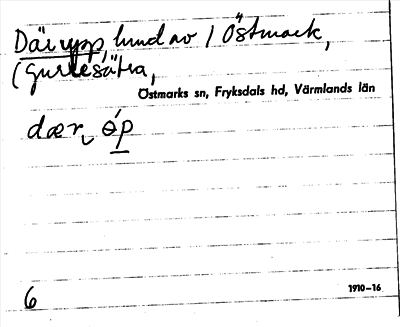 Därupp, lund av 1 Östmark,
(Gurlesätra,
Östmarks sn, Fryksdals hd, Värmlands län
dær ǿp
6
1910-16